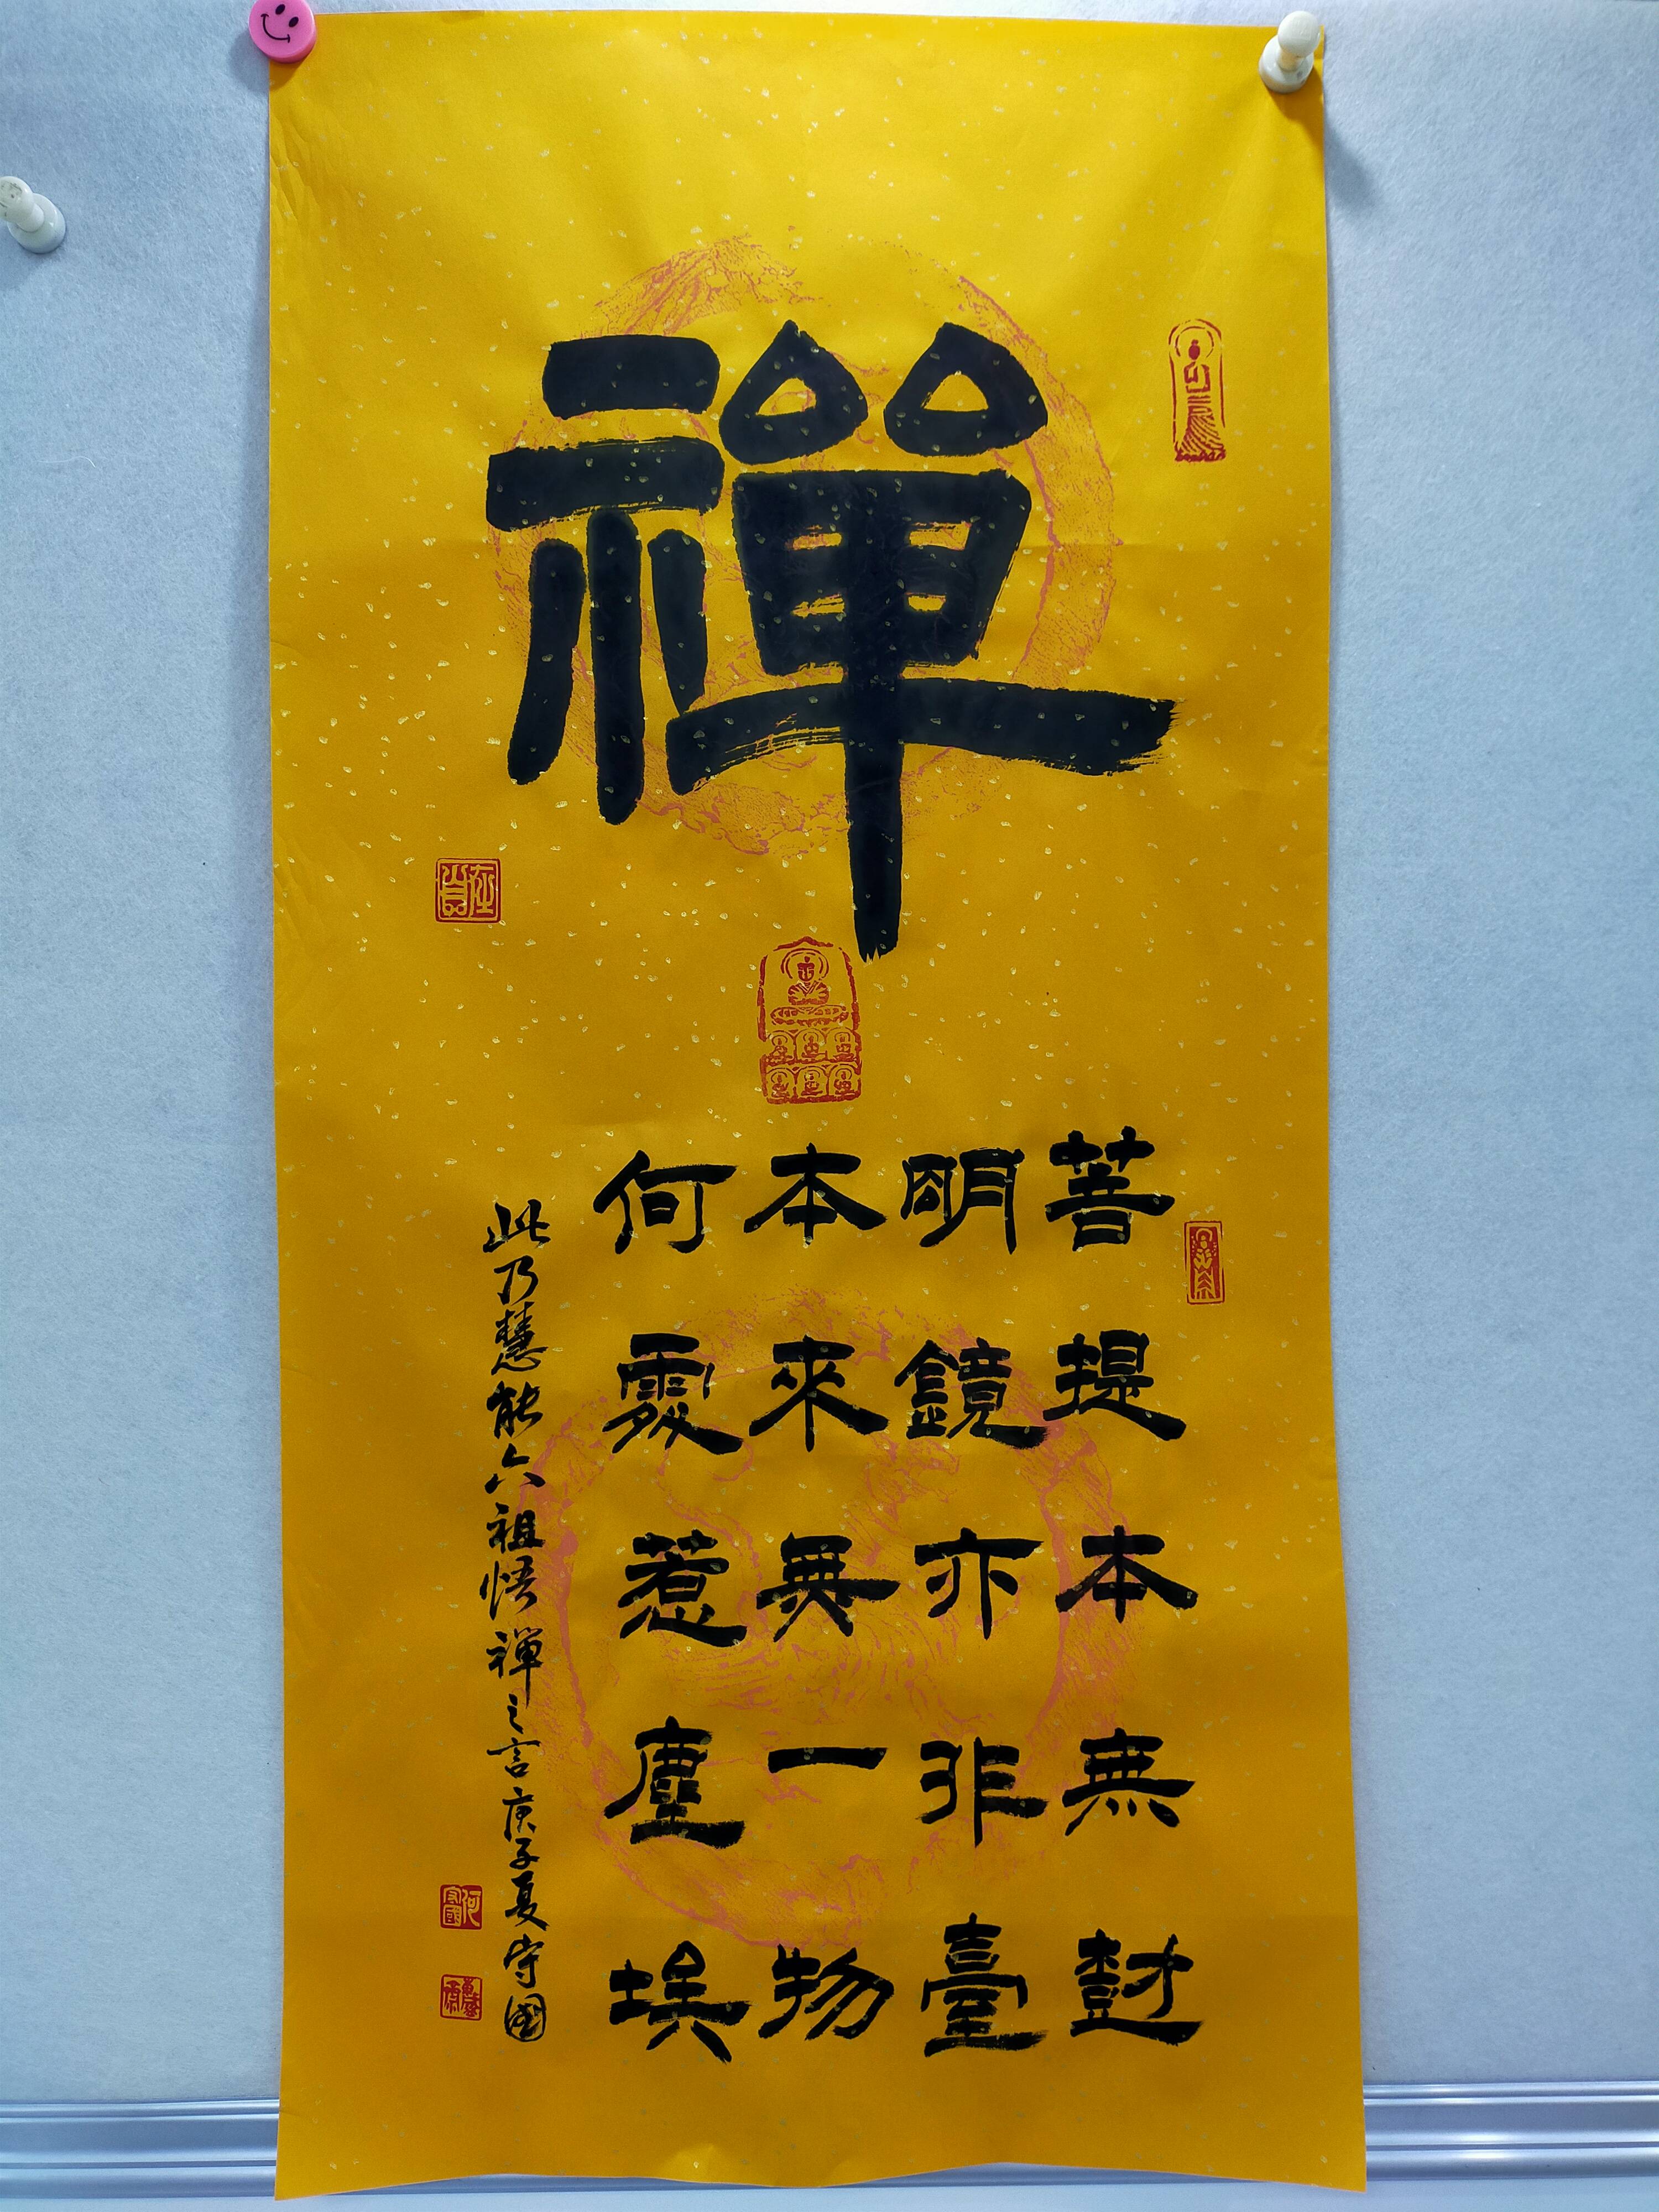 禪
菩提本無尌
明鏡亦非臺
本來無一物
何處惹塵埃
此乃慧能六祖悟禪之言庚子夏守國